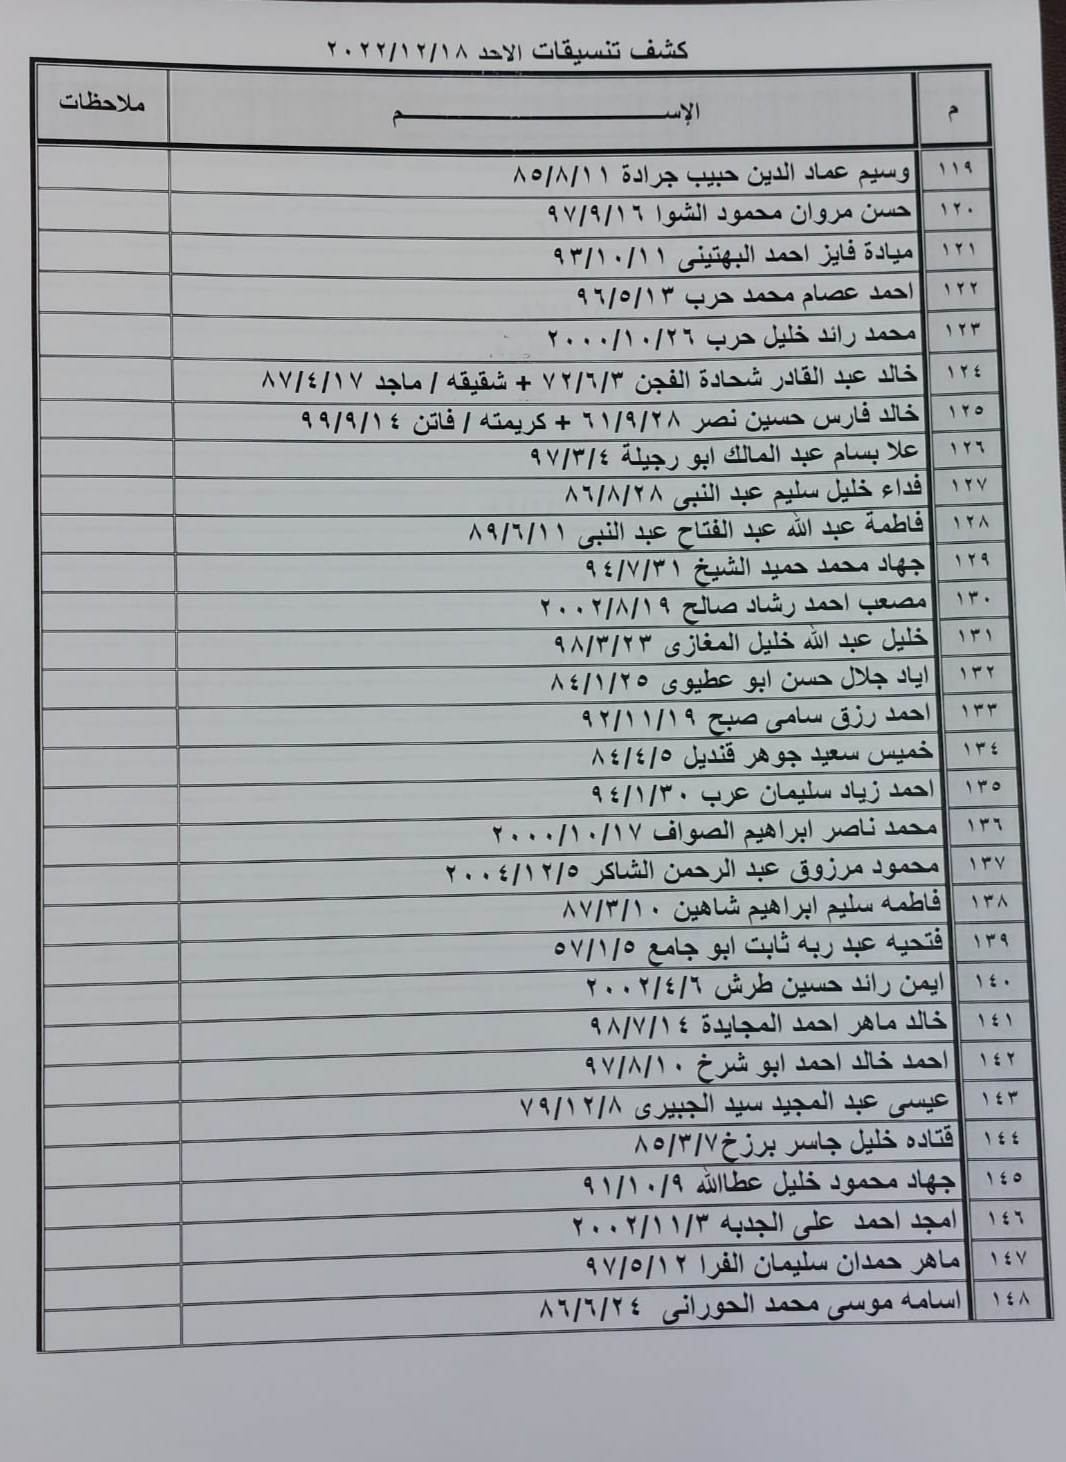 كشف تنسيقات الاحد ٢٠٢٢/١٢/١٨
م الإســـــــــــم ملاحظات
١١٩ وسيم عماد الدين حبيب جرادة ٨٥/٨/١١
١٢٠ حسن مروان محمود الشوا ٩٧/٩/١٦
١٢١ ميادة فايز احمد البهتينى ٩٣/١٠/١١
١٢٢ احمد عصام محمد حرب ٩٦/٥/١٣
١٢٣ محمد رائد خليل حرب ٢٠٠٠/١٠/٢٦
١٢٤ خالد عبد القادر شحادة الفجن ٧٢/٦/٣ + شقيقه / ماجد ٨٧/٤/١٧
١٢٥ خالد فارس حسين نصر ٦١/٩/٢٨ + كريمته / فاتن ٩٩/٩/١٤
١٢٦ علا بسام عبد المالك ابو رجيلة ٩٧/٣/٤
١٢٧ فداء خليل سليم عبد النبى ٨٦/٨/٢٨
١٢٨ فاطمة عبد الله عبد الفتاح عبد النبى ٨٩/٦/١١
١٢٩ جهاد محمد حميد الشيخ ٩٤/٧/٣١
١٣٠ مصعب احمد رشاد صالح ٢٠٠٢/٨/١٩
١٣١ خليل عبد الله خليل المغازى ٩٨/٣/٢٣
١٣٢ اياد جلال حسن ابو عطيوى ٨٤/١/٢٥
١٣٣ احمد رزق سامى صبح ٩٢/١١/١٩
١٣٤ خميس سعيد جوهر قنديل ٨٤/٤/٥
١٣٥ احمد زياد سليمان عرب ٩٤/١/٣٠
١٣٦ محمد ناصر ابراهيم الصواف ٢٠٠٠/١٠/١٧
١٣٧ محمود مرزوق عبد الرحمن الشاكر ٢٠٠٤/١٢/٥
١٣٨ فاطمه سليم ابراهيم شاهين ٨٧/٣/١٠
١٣٩ فتحيه عبد ربه ثابت ابو جامع ٥٧/١/٥
١٤٠ ايمن رائد حسين طرش ٢٠٠٢/٤/٦
١٤١ خالد ماهر احمد المجايدة ٩٨/٧/١٤
١٤٢ احمد خالد احمد ابو شرخ ٩٧/٨/١٠
١٤٣ عيسى عبد المجيد سيد الجبيرى ٧٩/١٢/٨
١٤٤ قتاده خليل جاسر برزخ٨٥/٣/٧
١٤٥ جهاد محمود خليل عطاالله ٩١/١٠/٩
١٤٦ امجد احمد على الجدبه ٢٠٠٢/١١/٣
١٤٧ ماهر حمدان سليمان الفرا ٩٧/٥/١٢
١٤٨ اسامه موسى محمد الحورانى ٨٦/٦/٢٤